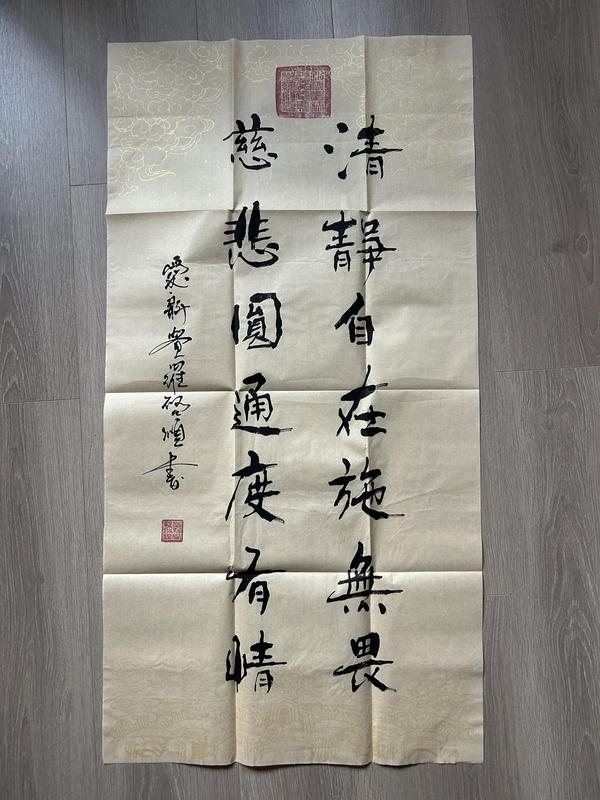 清靜自在施無畏
慈悲圓通度有情
愛新覺羅書